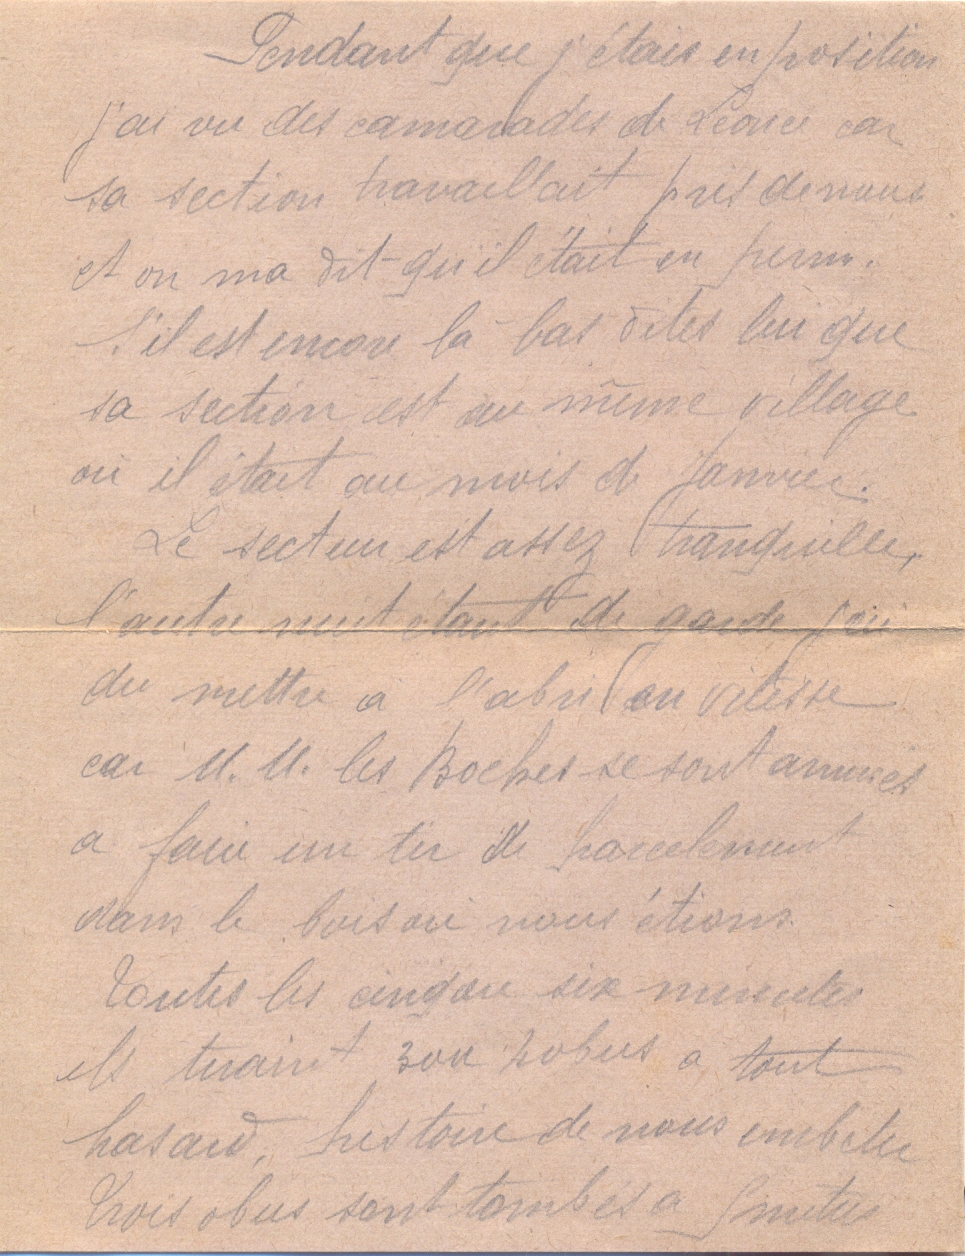 Pendant que j'étais en position
j'ai vu des camarades de Léonce car
sa section travaillait près de nous
et on ma dit qu'il était en perm.
S'il est encore la bas dites lui que
sa section est au même village
où il était au mois de Janvier.
Le secteur est assez tranquille,
l'autre nuit étant de garde j'ai
du mettre a l'abri en vitesse
car M. M. les Boches se sont amusés
a faire un tir de harcelement
dans le bois ou nous étions
Toutes les cinq ou six minutes
ils tiraient 3 ou 4 obus a tout
hasard, histoire de nous embeter
Trois obus sont tombés a 5 metres